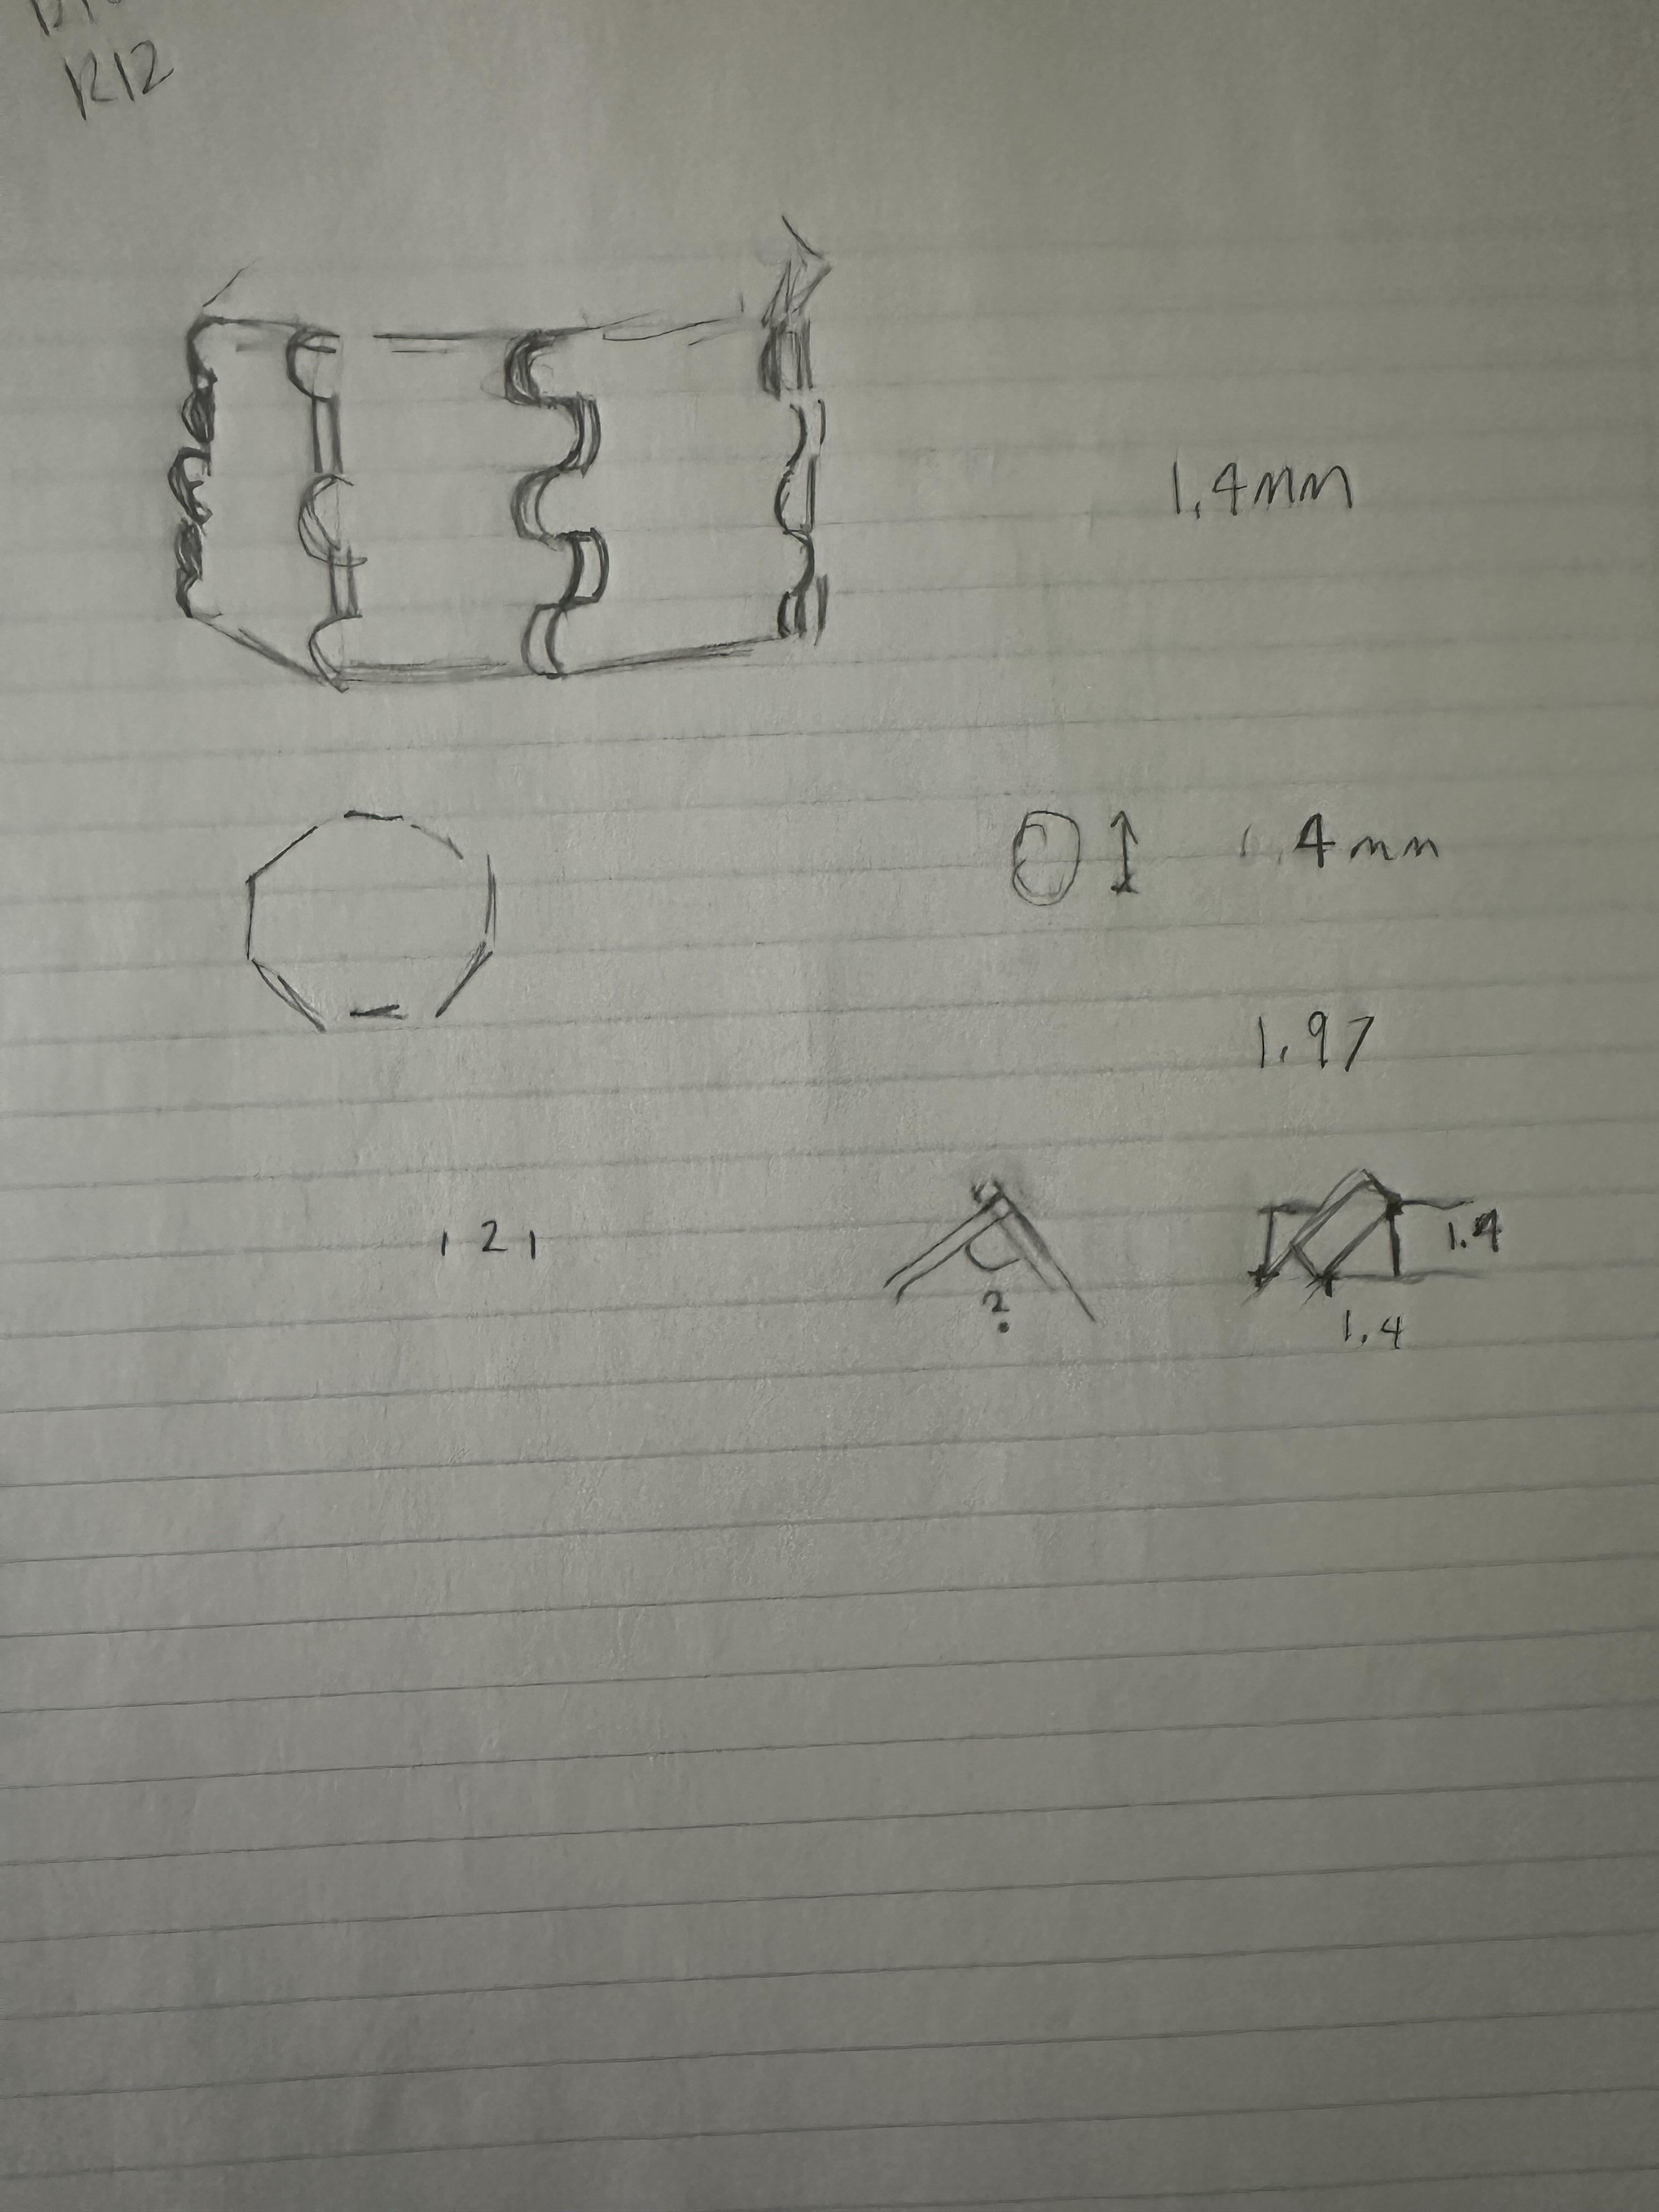 R12
1.4mm
1.4mm
1.97
121
?
1.4
1.4